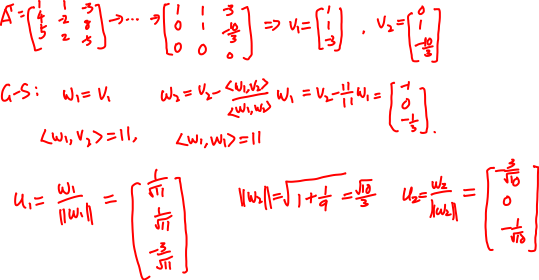 A^T = (1 1 -3; 4 -2 8; 5 2 -5) → ... → (1 1 -3; 0 1 -10/3; 0 0 0) ⇒ v₁ = (1; 1; -3), v₂ = (0; 1; -10/3)
G-S: w₁ = v₁ w₂ = v₂ - <w₁,v₂>/<w₁,w₁> w₁ = v₂ - 11/11 w₁ = (-1; 0; -1/3).
<w₁,v₂> = 11, <w₁,w₁> = 11
u₁ = w₁/||w₁|| = (1/√11; 1/√11; -3/√11) ||w₂|| = √(1 + 1/9) = √10/3 u₂ = w₂/||w₂|| = (-3/√10; 0; -1/√10)